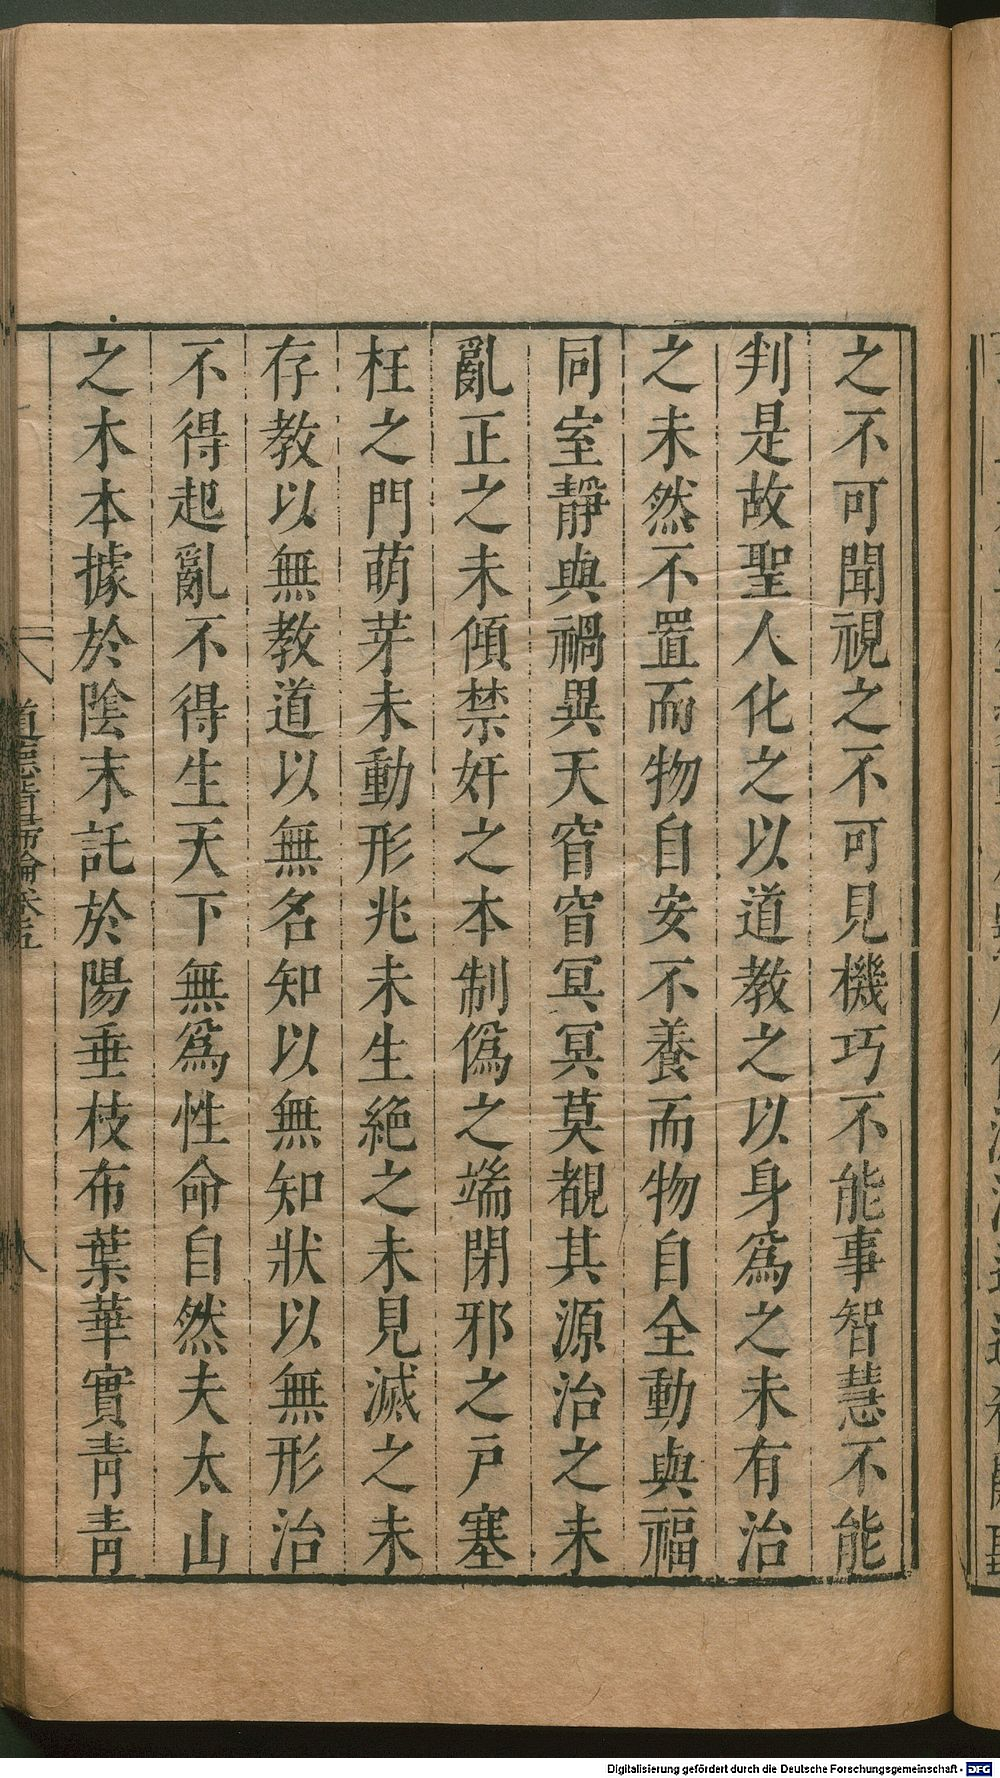 之不可聞視之不可見機巧不能事智慧不能
判是故聖人化之以道教之以身爲之未有治
之未然不置而物自安不養而物自全動與福
同室靜與禍異天窅窅冥冥莫覩其源治之未
亂正之未傾禁奸之本制僞之端閉邪之戶塞
枉之門萌芽未動形兆未生絶之未見滅之未
存教以無教道以無名知以無知狀以無形治
不得起亂不得生天下無爲性命自然夫太山
之木本據於陰末託於陽垂枝布葉華實青青
道德指歸論卷五
八
Digitalisierung gefördert durch die Deutsche Forschungsgemeinschaft - DFG